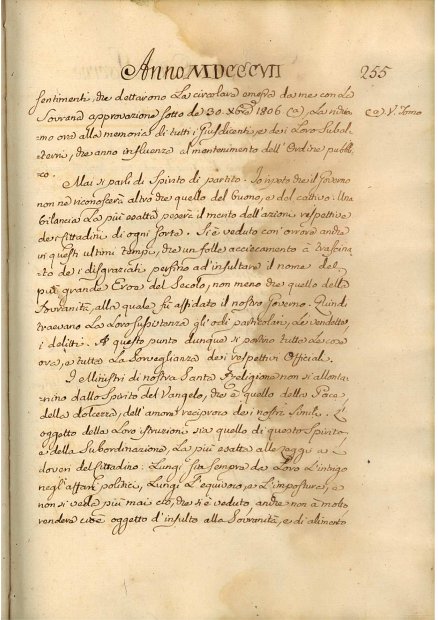 Anno MDCCCVII 255
sentimenti, che dettarono La circolare emessa da me con La
Sovrana approvazione sotto de 30. Xbre 1806 (a), La richia=
mo ora alla memoria di tutti i Giusdicenti, e dei Loro Subal=
terni, che anno influenza al mantenimento dell'Ordine pubbli=
co.
(a) V. Tomo
Mai si parli di Spirito di partito. Io ripeto che il Governo
non ne riconoscerà altro che quello del buono, e del cattivo. Una
bilancia La più esatta peserà il merito dell'azioni respettive
dei Cittadini di ogni sorta. Si è veduto con orrore anche
in questi ultimi tempi, che un folle acciecamento à trascina=
to dei disgraziati perfino ad insultare il nome del
più grande Eroe del Secolo, non meno che quello della
Sovranità, alla quale fù affidato il nostro Governo. Quindi
traevano La Loro sussistenza gl'odi particolari, Le vendette,
i delitti. A questo punto dunque si portino tutte Le cure
ora, e tutta La Sorveglianza dei respettivi Officiali.
I Ministri di nostra Santa Religione non si allonta=
nino dallo Spirito del Vangelo, che è quello della Pace
della dolcezza, dell'amore reciproco dei nostri Simili. L'
oggetto della Loro istruzioni sia quello di questo Spirito,
e della Subordinazione, La più esatta alle Leggi, e ai
doveri del Cittadino. Lungi sia sempre da Loro L'intrigo
negl'affari politici, Lungi L'equivoco, e L'impostura, e
non si veda più mai ciò, che si è veduto, anche non à molto
rendere cioè oggetto d'insulto alla Sovranità, e di alimento